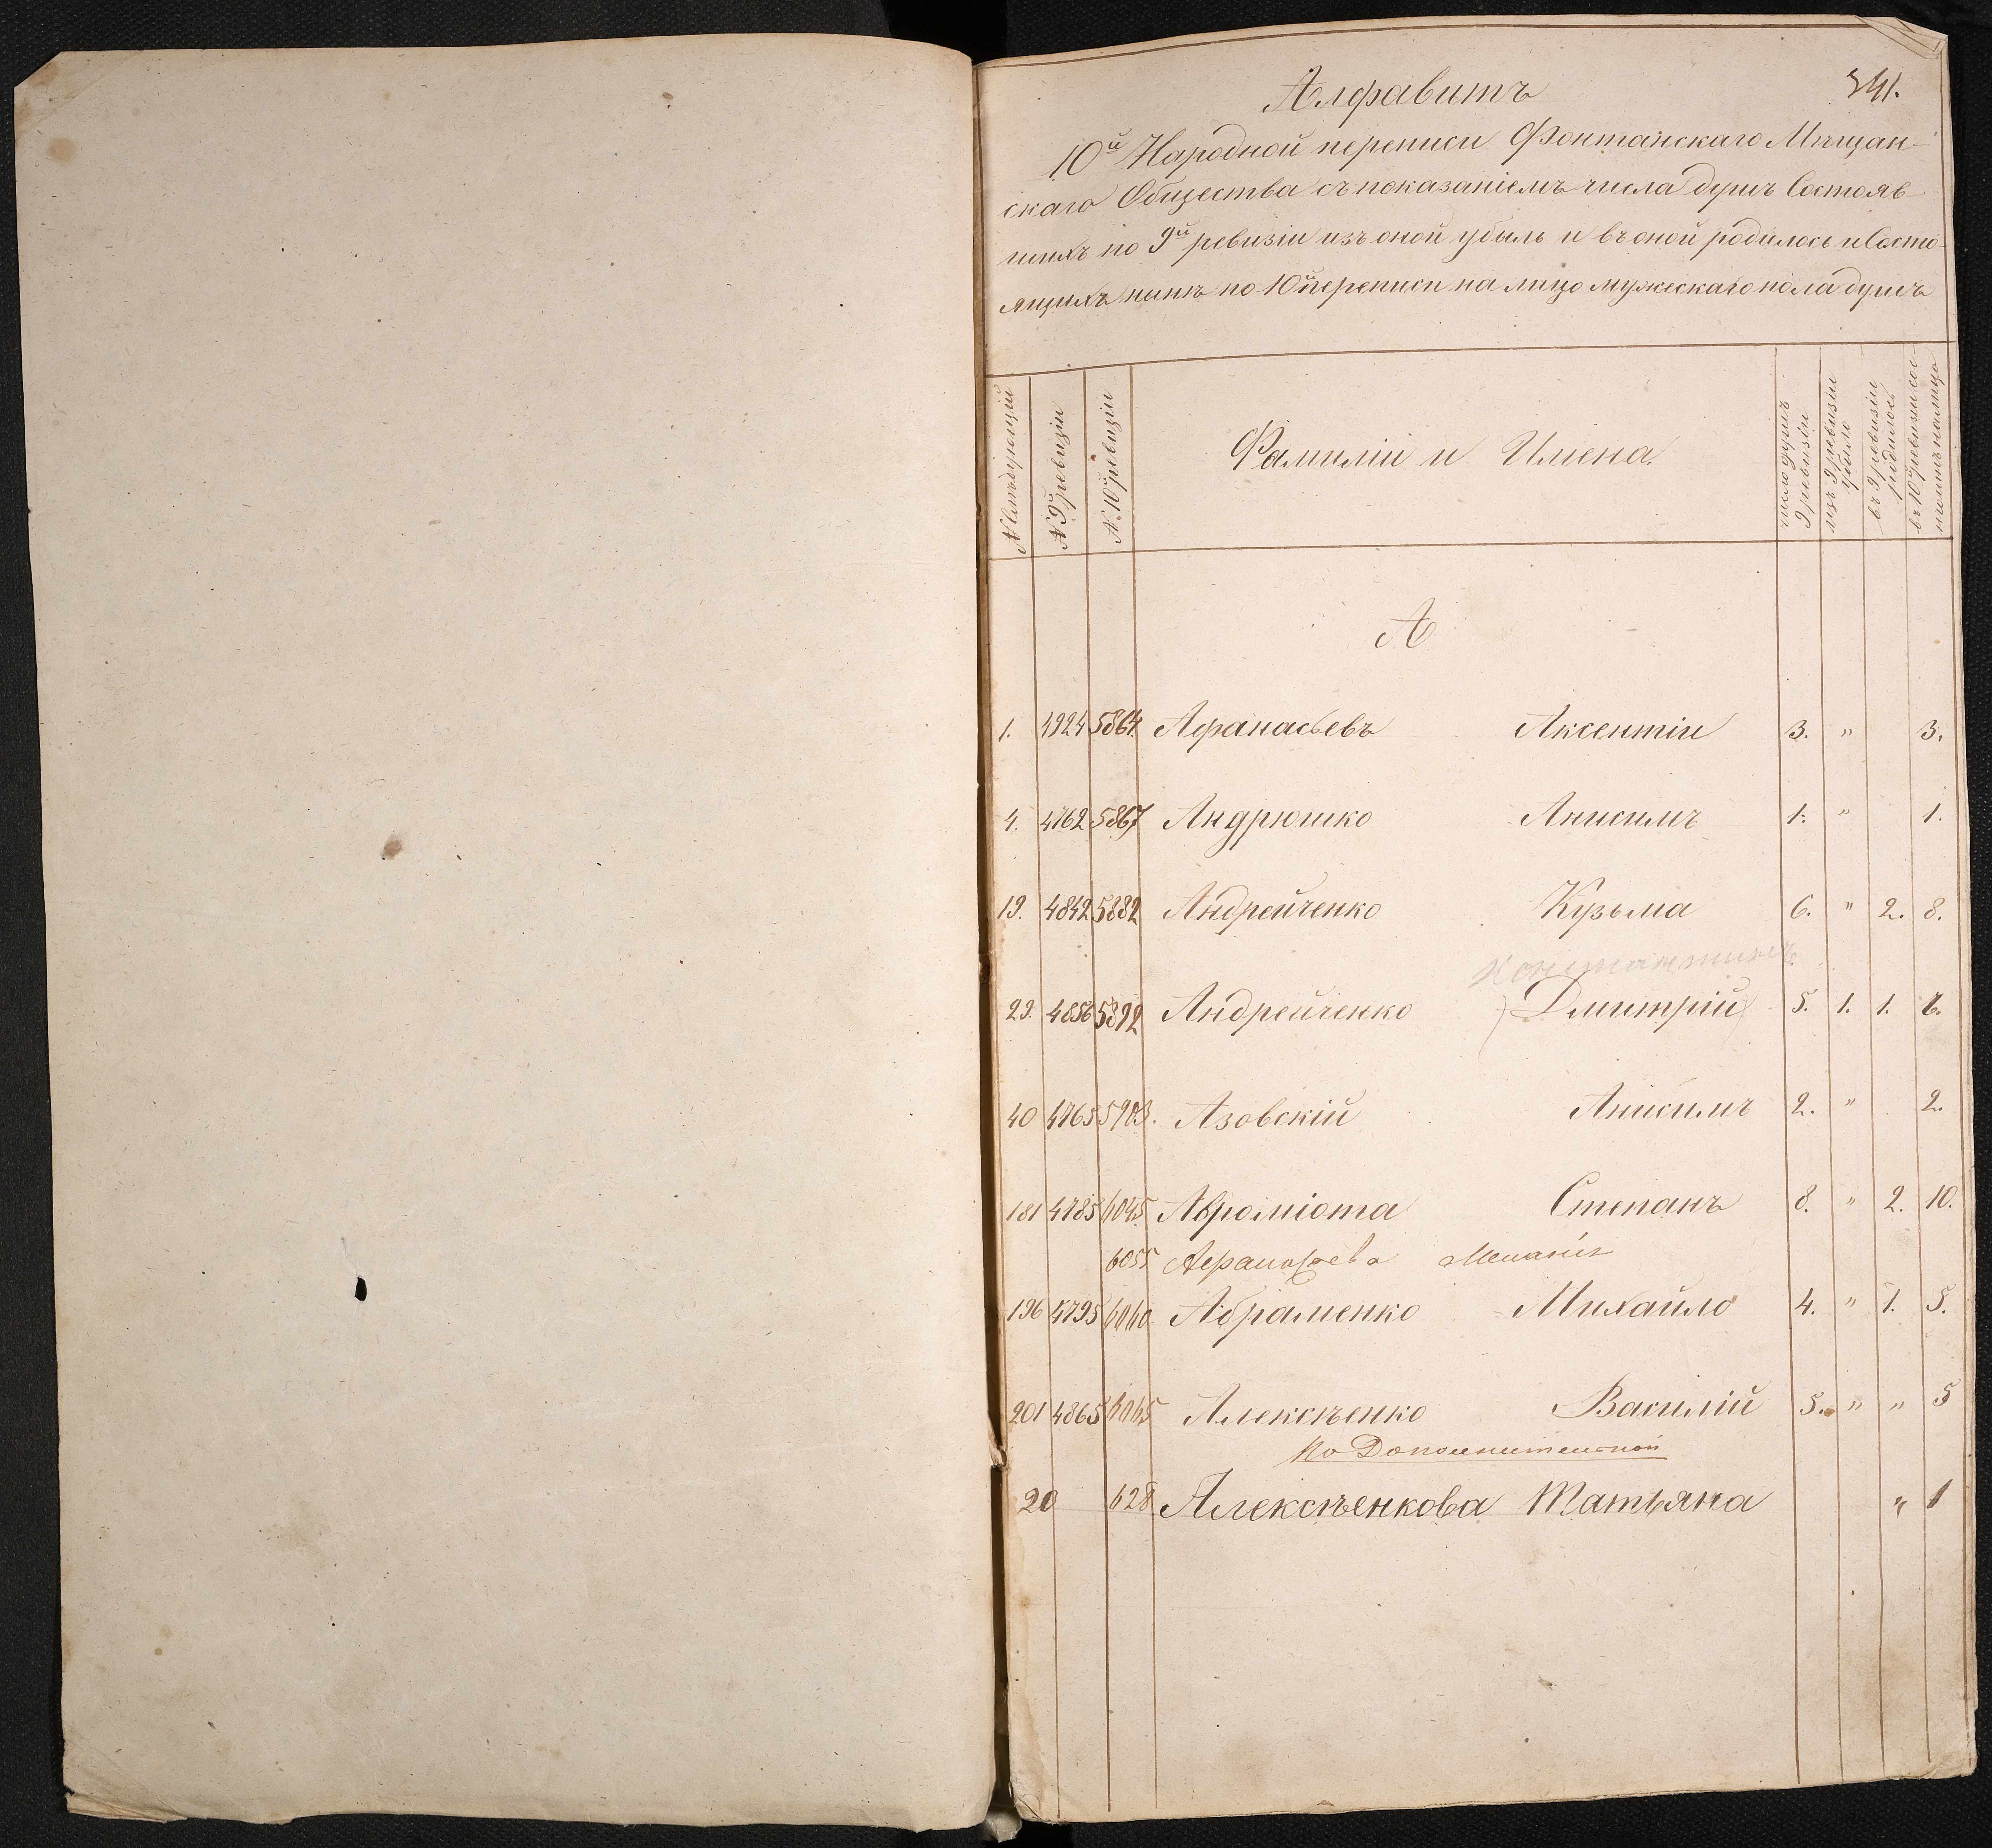 341.
Алфавитъ
10й Народной переписи Фонтанскаго Мѣщан-
скаго Общества съ показаніемъ числа душъ Состояв-
шихъ по 9й ревизіи изъ оной убыль и въ оной родилось и Состо-
ящихъ нынѣ по 10й переписи на лицо мужескаго пола душъ
№ Слѣдующій
№ 9й ревизіи
№ 10й ревизіи
Фамиліи и Имена.
число душъ 9 ревизіи
изъ 9 ревизіи убыло
въ 9 ревизіи родилось
въ 10й ревизіи сос-тоитъ налицо
А
1. 4924 5864. Афанасьевъ Аксентій 3. " 3.
4. 4762 5867 Андрюшко Анисимъ 1. " 1.
19. 4842 5882 Андрейченко Кузьма 6. " 2. 8.
Константинъ
29. 4856 5892 Андрейченко (Дмитрій) 5. 1. 1.
40 4765 5903. Азовскій Анисимъ 2. " 2.
181 4785 6045 Авроміота Степанъ 8. " 2. 10.
6055 Афанасьева
196 4795 6060 Абраменко Михайло 4. " 1. 5.
201 4865 6065 Алексѣенко Василій 5. " " 5
По Дополнительной
20 628 Алексѣенкова Татьяна " 1